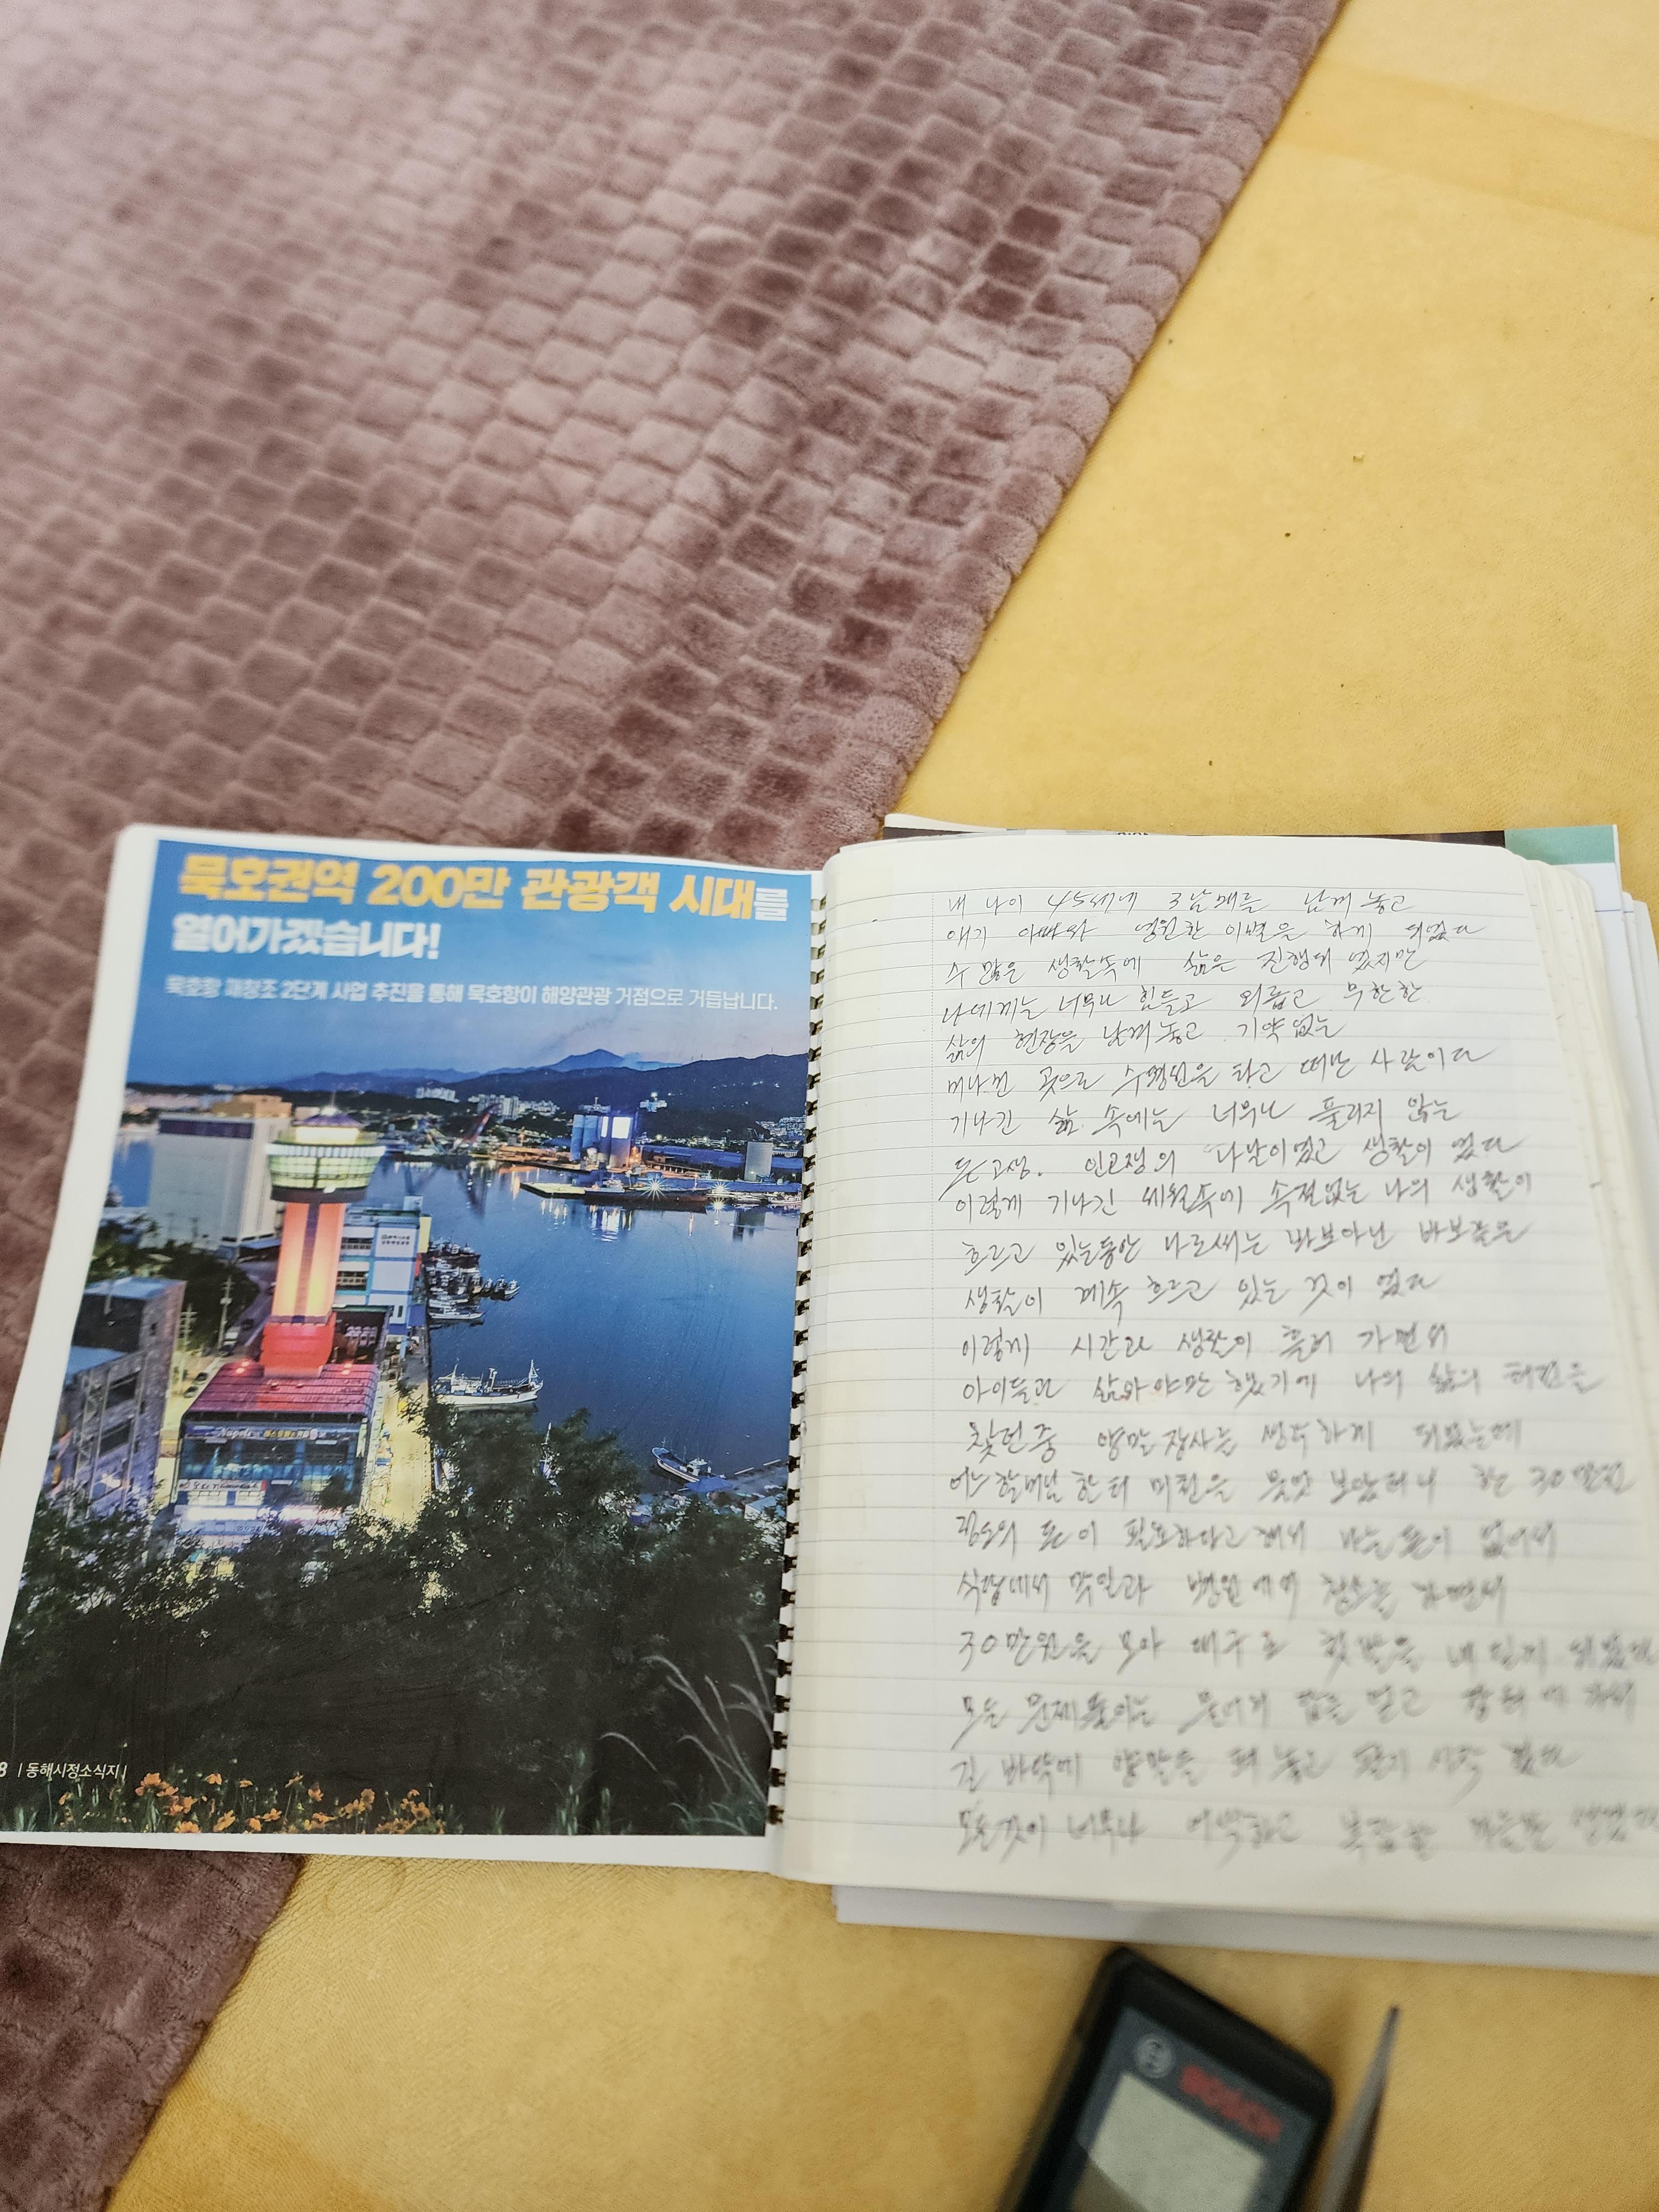 묵호권역 200만 관광객 시대를
열어가겠습니다!
묵호항 재창조 2단계 사업 추진을 통해 묵호항이 해양관광 거점으로 거듭납니다.
8 | 동해시정소식지 |
내 나이 45세에 3남매를 남겨 놓고
애기 아빠와 영원한 이별을 하게 되었다
수 많은 생활속에 삶은 진행되 였지만
나에게는 너무나 힘들고 외롭고 무한한
삶의 현장을 남겨놓고 기약없는
머나먼 곳으로 떠난 사람이다
지나간 삶 속에는 너무나 풀리지 않는
나날이였고 생활이 였다
이렇게 지나간 세월속에 속절없는 나의 생활이
흐르고 있는동안 나로써는 바보아닌 바보같은
생활이 계속 흐르고 있는 것이 였다
이렇게 시간과 생활이 흘러 가면서
아이들과 살아야만 했기에 나의 삶의 터전을
찾던중 양말장사를 생각하게 되었는데
어느 할머님 한테 30만원
정도의 돈이 필요하다고 해서 나는 돈이 없어서
식당에서 막일과 병원에서 청소를 하면서
30만원을 모아 대구로 첫발을 내 딛게 되었다
길 바닥에 양말을 펴 놓고 팔기 시작 했다
모든것이 너무나